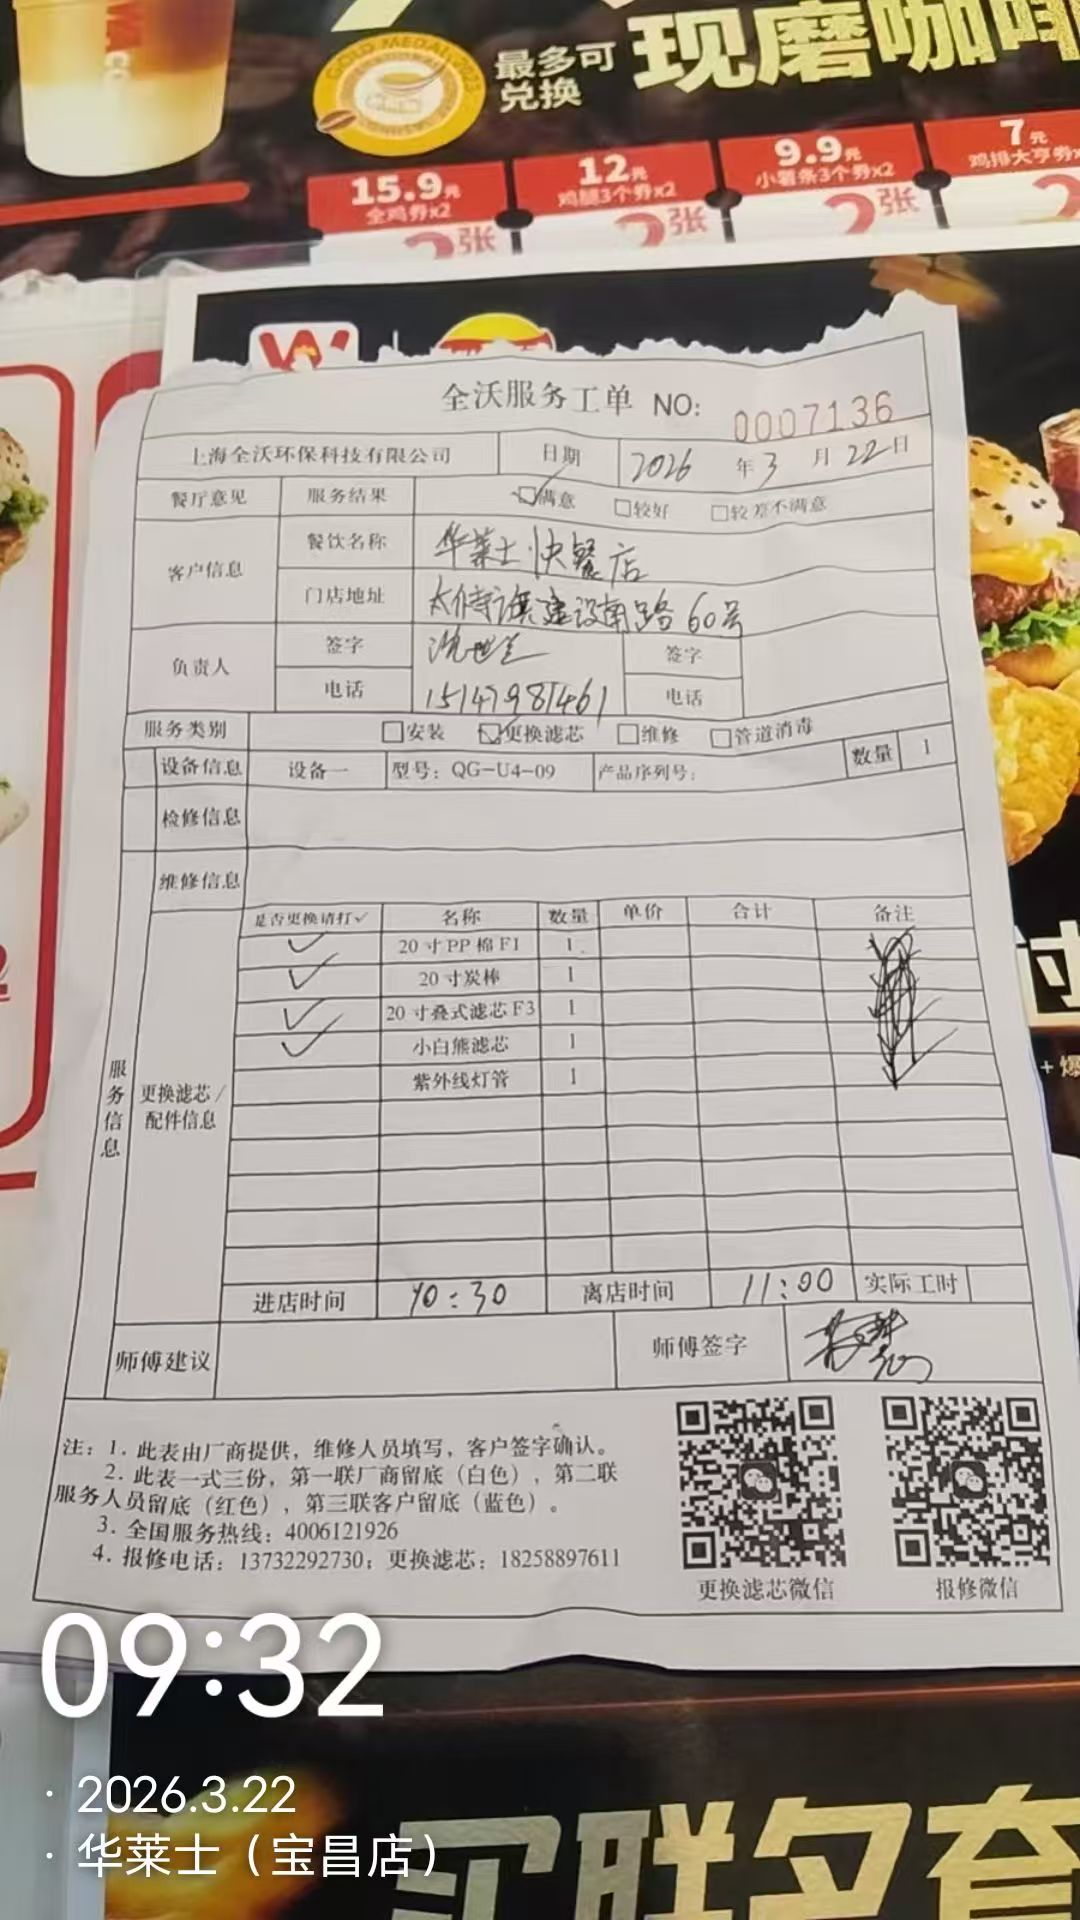 GOLD MEDAL
最多可
兑换
现磨咖啡
15.9元
全鸡券x2
2张
12元
鸡腿3个券x2
2张
9.9元
小薯条3个券x2
2张
7元
鸡排大亨券x
全沃服务工单 NO: 0007136
上海全沃环保科技有限公司 日期 2026 年 3 月 22 日
餐厅意见 服务结果 满意 较好 较差不满意
客户信息 餐饮名称 华莱士快餐店
门店地址 太仆寺旗建设南路60号
负责人 签字 签字
电话 15147981461 电话
服务类别 安装 更换滤芯 维修 管道消毒
设备信息 设备一 型号：QG-U4-09 产品序列号： 数量 1
检修信息
维修信息
服务信息
更换滤芯/
配件信息
是否更换请打✓ 名称 数量 单价 合计 备注
✓ 20寸PP棉F1 1
✓ 20寸炭棒 1
✓ 20寸叠式滤芯F3 1
✓ 小白熊滤芯 1
紫外线灯管 1
进店时间 10:30 离店时间 11:00 实际工时
师傅建议 师傅签字
注：1. 此表由厂商提供，维修人员填写，客户签字确认。
2. 此表一式三份，第一联厂商留底（白色），第二联
服务人员留底（红色），第三联客户留底（蓝色）。
3. 全国服务热线：4006121926
4. 报修电话：13732292730；更换滤芯：18258897611
更换滤芯微信
报修微信
09:32
· 2026.3.22
· 华莱士（宝昌店）
买联名套